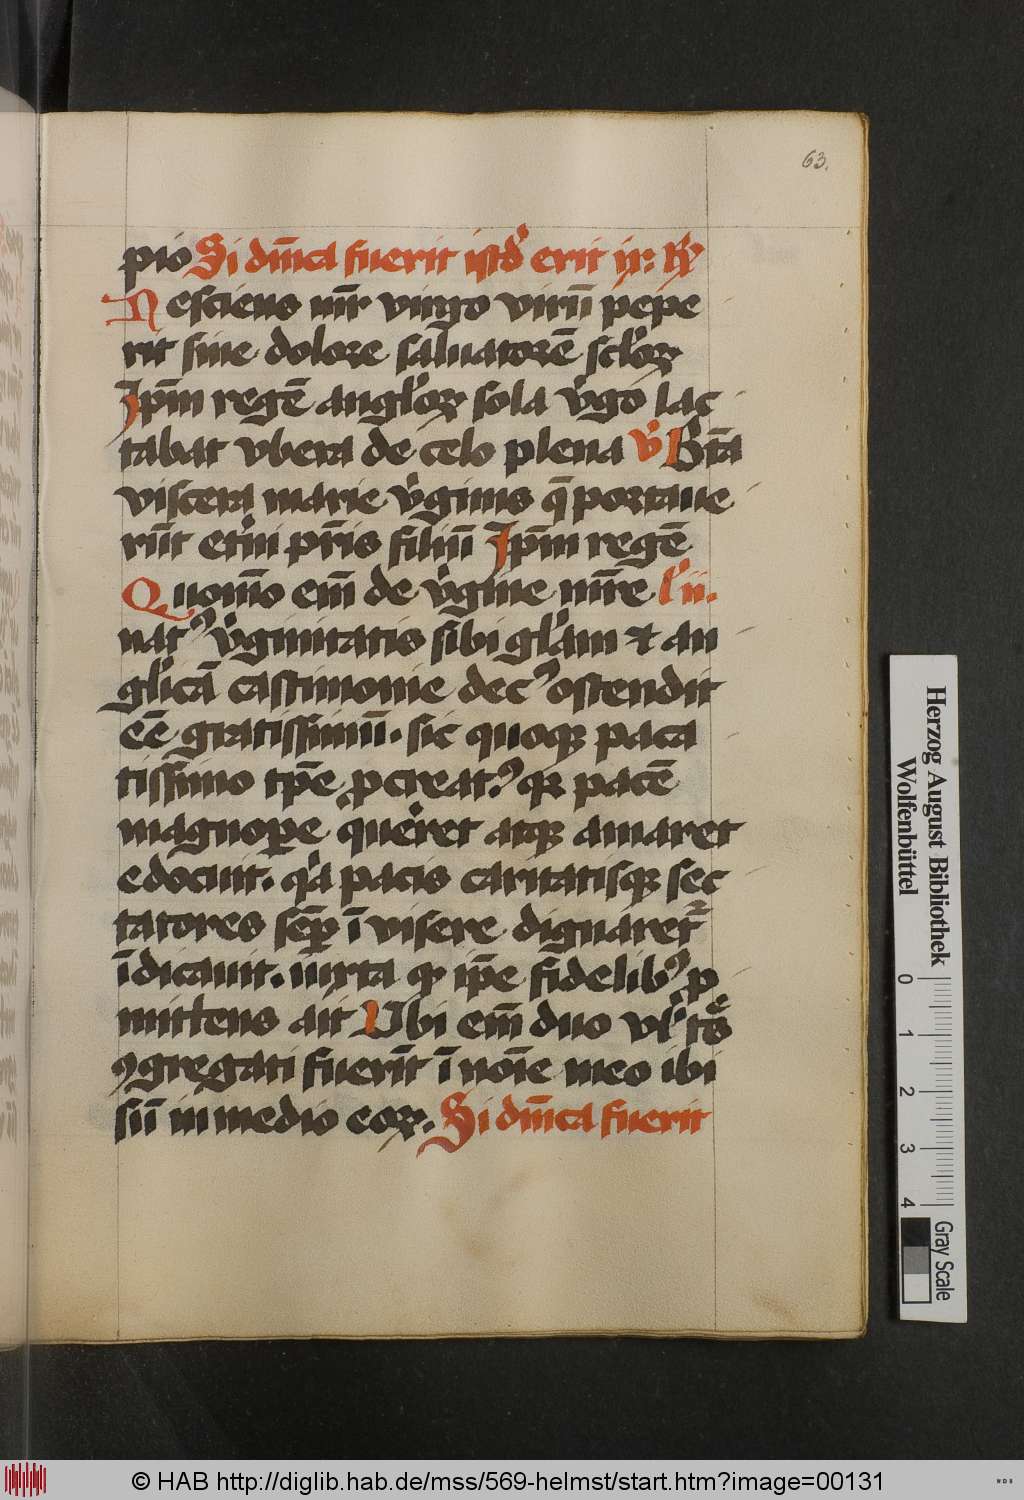 63.
pio Si dn̄ica fuerit istd' erit ix: R'
Nesciens mr̄ virgo virū pepe
rit sine dolore saluatorē sclʼoꝝ
Ip̄m regē anglʼoꝝ sola vʼgo lac
tabat vbera de celo plena Vʼ Bt̄a
viscera marie vʼginis q̄ portaue
rūt etʼni pr̄is filiū Ip̄m regē
Quomō em̄ de vʼgine mr̄e lʼ ii.
natꝰ vʼginitatis sibi glʼiam ⁊ an
glʼicā castimonie decꝰ ostendit
eē gratissimū. sic quoqꝫ paca
tissimo tp̄e ꝓcreatꝰ. qꝫ pacē
magnoꝑe querʼet atqꝫ amaret
edocuit. qʼa pacis caritatisqꝫ sec
tatores semꝑ ī visere dignaretʼ
īdicauit. iuxta qꝫ ip̄e fidelibꝰ p
mittens ait Vbi em̄ duo vlʼ tʼs
ꝯgregati fuerīt ī noīe meo ibi
sū in medio eoꝝ. Si dn̄ica fuerit
Herzog August Bibliothek
Wolfenbüttel
0 1 2 3 4
Gray Scale
© HAB http://diglib.hab.de/mss/569-helmst/start.htm?image=00131